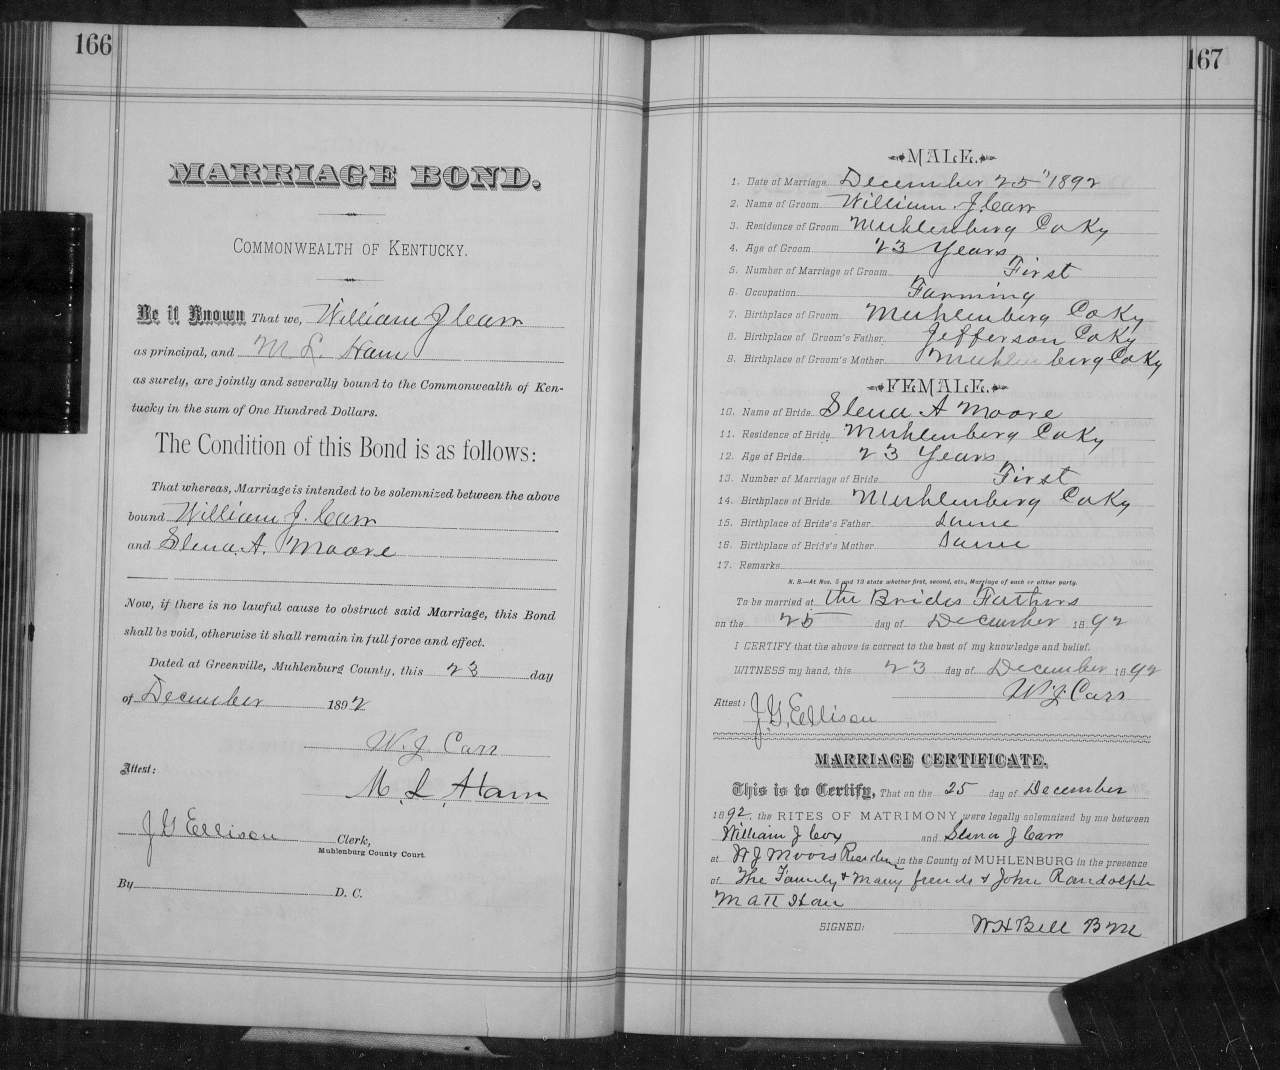 166
MARRIAGE BOND.
COMMONWEALTH OF KENTUCKY.
Be it Known That we, William J Carr
as principal, and M. L. Ham
as surety, are jointly and severally bound to the Commonwealth of Ken-
tucky in the sum of One Hundred Dollars.
The Condition of this Bond is as follows:
That whereas, Marriage is intended to be solemnized between the above
bound William J. Carr
and Slena. A. Moore
Now, if there is no lawful cause to obstruct said Marriage, this Bond
shall be void, otherwise it shall remain in full force and effect.
Dated at Greenville, Muhlenburg County, this 23 day
of December 1892
W. J. Carr
Attest:
M. L. Ham
J G Ellison Clerk,
Muhlenburg County Court.
By D. C.
167
MALE.
1. Date of Marriage December 25" 1892
2. Name of Groom William J. Carr
3. Residence of Groom Muhlenberg Co Ky
4. Age of Groom 23 Years
5. Number of Marriage of Groom First
6. Occupation Farming
7. Birthplace of Groom Muhlenberg Co Ky
8. Birthplace of Groom's Father Jefferson Co Ky
9. Birthplace of Groom's Mother Muhlenberg Co Ky
FEMALE.
10. Name of Bride Slena A Moore
11. Residence of Bride Muhlenberg Co Ky
12. Age of Bride 23 Years
13. Number of Marriage of Bride First
14. Birthplace of Bride Muhlenberg Co Ky
15. Birthplace of Bride's Father Same
16. Birthplace of Bride's Mother Same
17. Remarks
N. B.—At Nos. 5 and 13 state whether first, second, etc., Marriage of each or either party.
To be married at the Brides Fathers
on the 25 day of December 1892
I CERTIFY that the above is correct to the best of my knowledge and belief.
WITNESS my hand, this 23 day of December 1892
W. J. Carr
Attest: J. G. Ellison
MARRIAGE CERTIFICATE.
This is to Certify, That on the 25 day of December
1892, the RITES OF MATRIMONY were legally solemnized by me between
William J Cox and Slena J Carr
at W J Moors Residen in the County of MUHLENBURG in the presence
of The Family & Many friends & John Randolph
Matt Ham
SIGNED: W H Bell B M